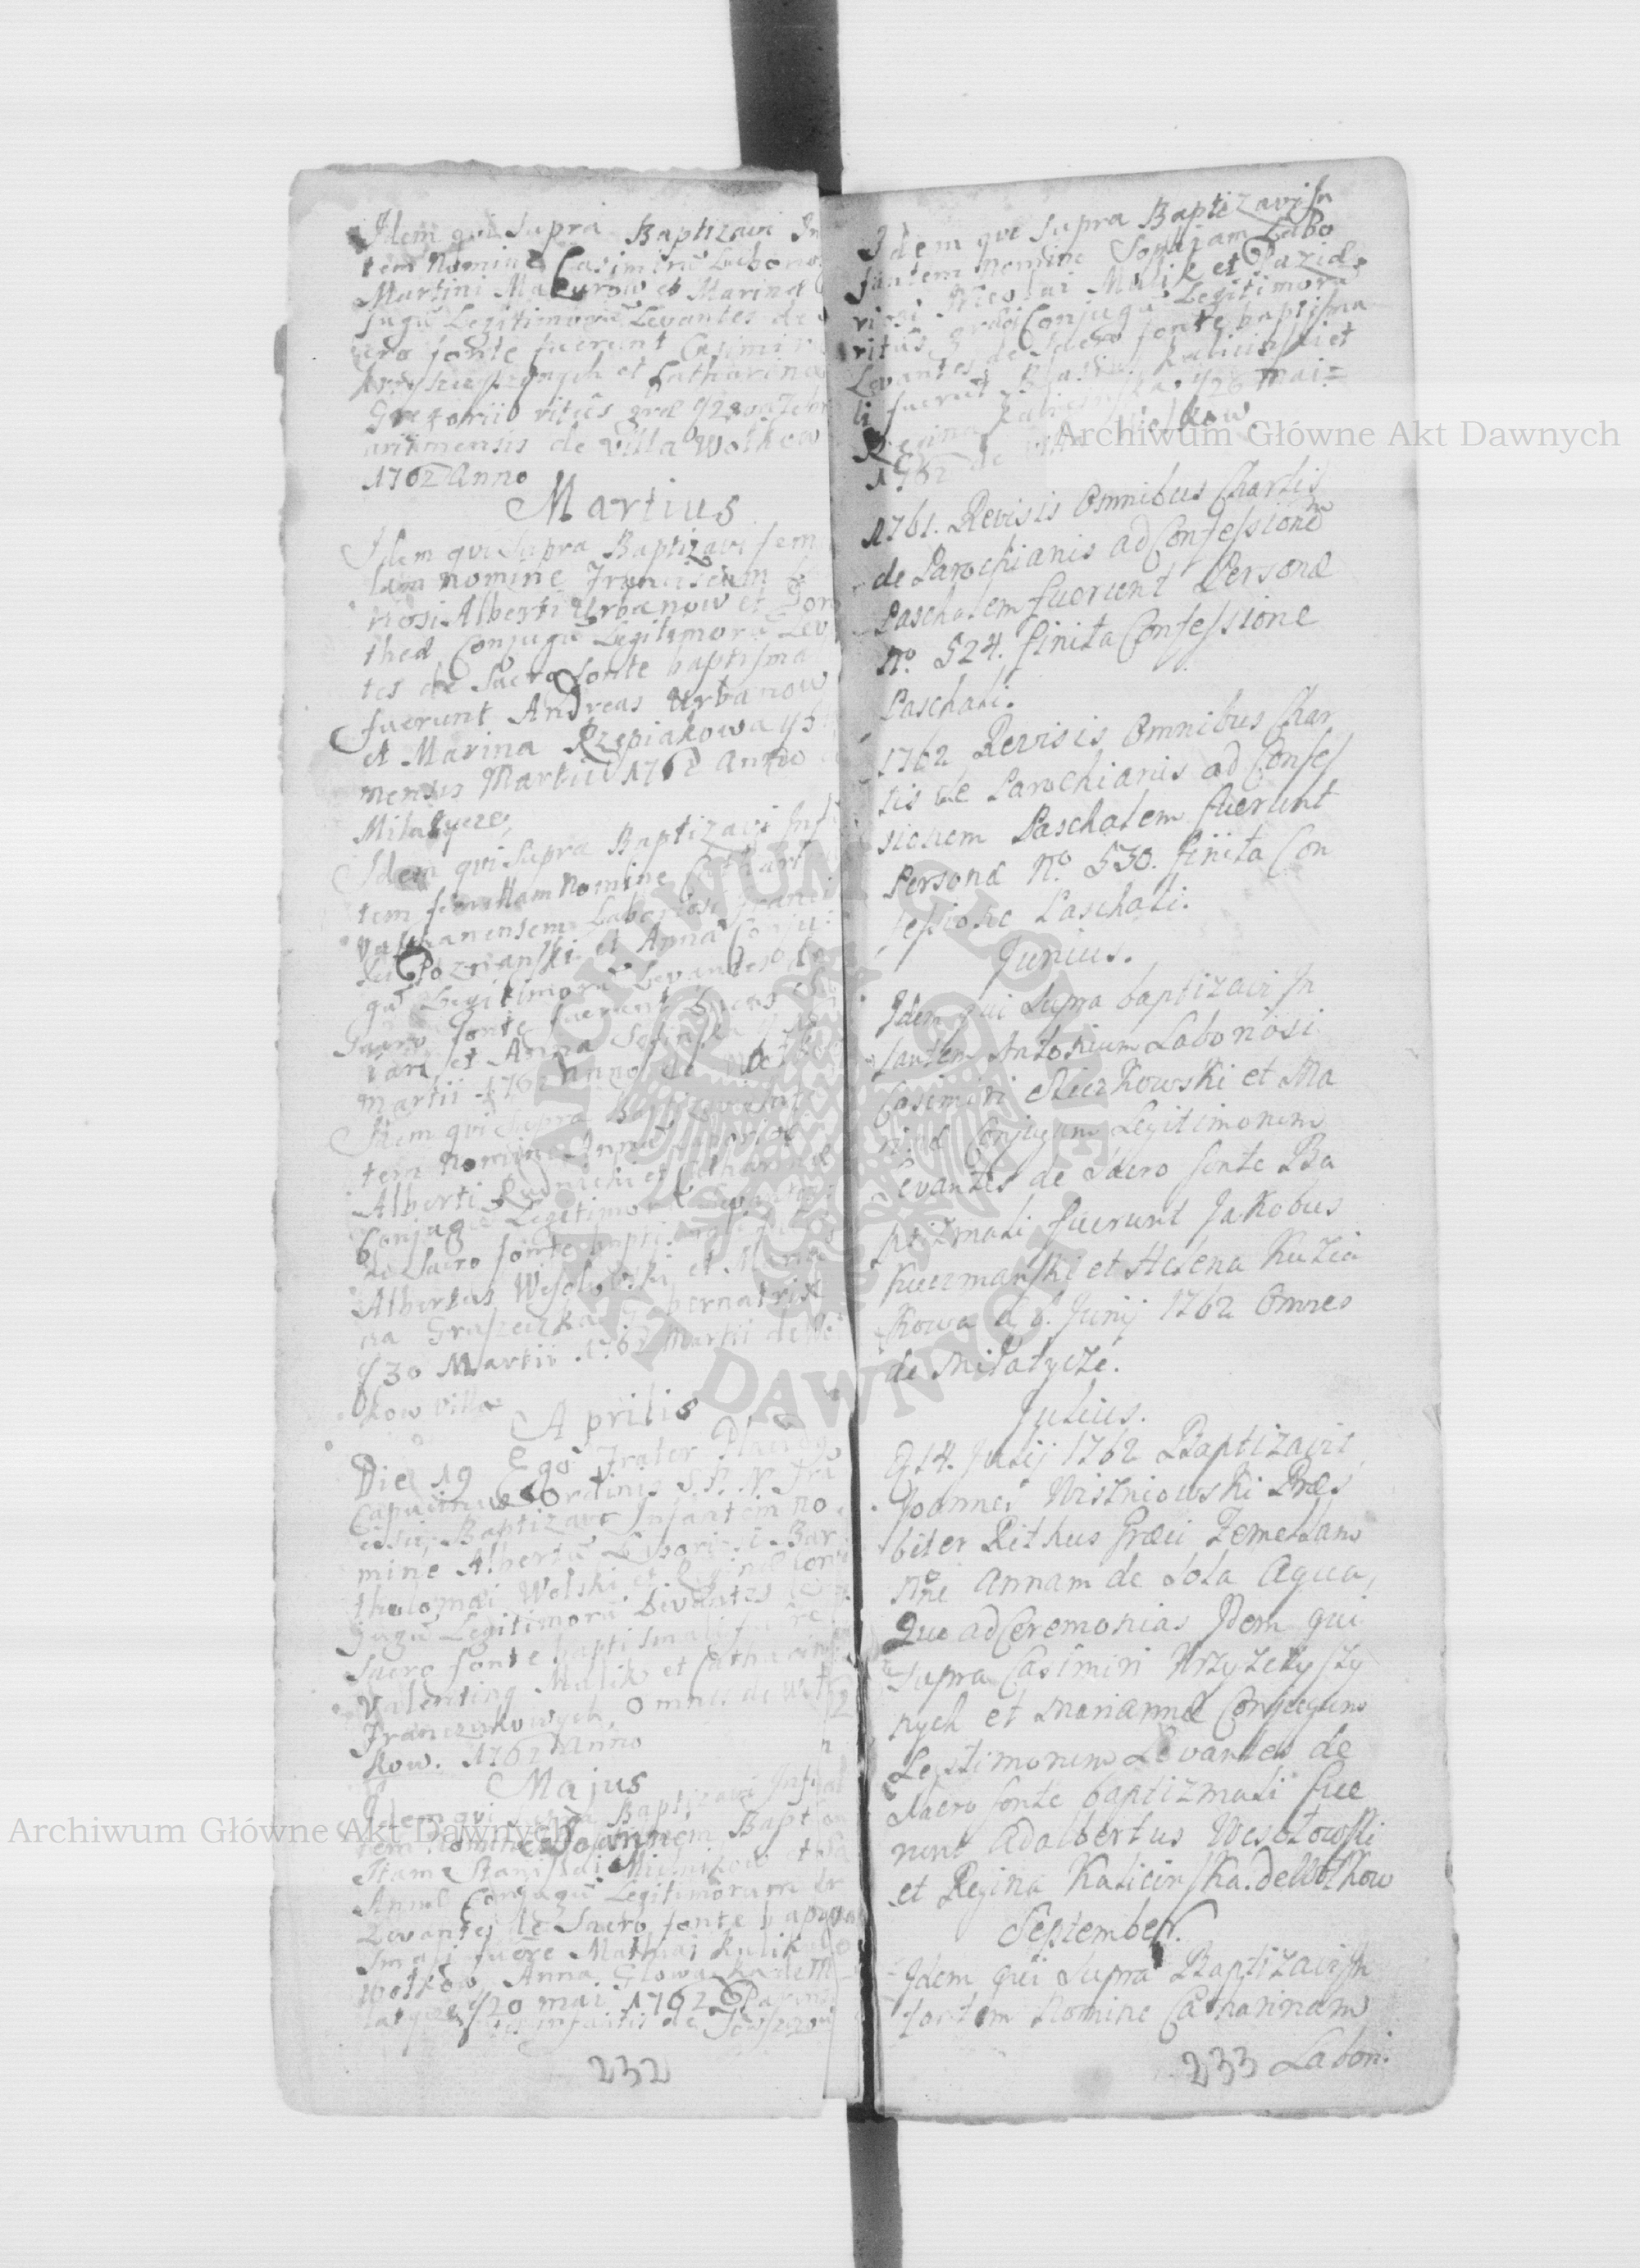 Idem qui Supra Baptizavi In
tem Nomine Casimirū Labono
Martini Mazurow et Marinæ
jugū Legitimorū Levantes de
cro fonte fuerunt Casimir
Krzyszczyszynych et Catharina
Gregorii ritus græ
de Villa Wolkow
1762 Anno
Martius
Idem qui Supra Baptizavi fem
lam nomine Franciscam
riosi Alberti Urbanow et Dor
theæ Conjugū Legitimorū Lev
tes de Sacro fonte baptisma
fuerunt Andreas Urbanow
et Marina Rzepiakowa
mensis Martii 1762 Anno
Milatycze
Idem qui Supra Baptizavi Inf
tem femellam Nomine Cathar
Laboriosi Franci
Poznanski et Anna Conju
gū Legitimorū Levantes de
Sacro fonte fuerunt Lucas
et Anna
Martii 1762 Anno de Wolkow
Idem qui Supra Baptizavi Inf
tem Nomine Annā Laboriosi
Alberti Rudnicki et Catharinæ
Conjugū Legitimorū Levantes
de Sacro fonte baptismali fue
Albertus Wesolowski et Maria
na Graszeczka Gubernatrix
30 Martii 1762 Martii de Wo
lkow villa
Aprilis
Die 19 Ego Frater Placidus
Capucinus Ordinis S. P. N. Fra
cisci, Baptizavi Infantem no
mine Albertū Laboriosi Bar
tholomæi Wolski et Reginæ Con
jugū Legitimorū Levantes de
Sacro fonte baptismali fuere
Valentinus Mulik et Catharina
Franczukowych, Omnes de Woł
kow. 1762 Anno
Majus
Idem qui Supra Baptizavi Infan
tem Nomine Joannem Bapt
stam Stanislai Mielnikow et
Annæ Conjugū Legitimorum
Levantes de Sacro fonte bapti
smali fuere Mathias Kulik
Wolkow Anna Glowacka de Mi
latycze 20 mai 1762 Parens
infantis de
232
Idem qui Supra Baptizavi In
fantem nomine Sophiam Labo
riosi Nicolai Mulik et Pazidæ
ritus græci Conjugū Legitimorū
Levantes de Sacro fonte baptisma
li fuerūt Blasius Kalicinski et
Regina Kalicinska 28 Mai
1762 de villa Wolkow
1761. Revisis Omnibus Chartis
de Parochianis ad Confessionē
Paschalem fuerunt Personæ
No. 524. finita Confessione
Paschali.
1762 Revisis Omnibus Char
tis de Parochianis ad Confes
sionem Paschalem fuerunt
Personæ No. 530. finita Con
fessione Paschali.
Junius.
Idem qui Supra baptizavi In
fantem Antonium Laboriosi
Casimiri Rieczkowski et Ma
rinæ Conjugum Legitimorum
Levantes de Sacro fonte Ba
ptizmali fuerunt Jakobus
Kuczmanski et Helena Kuzia
kowa d 9. Junij 1762 Omnes
de Milatycze.
Julius.
D 14. Julij 1762 Baptizavit
Joannes Wiszniowski Præs
biter Rithus Græci Femellam
nōe Annam de Sola Aqua,
Que ad Ceremonias Idem qui
Supra Casimiri Krzyzczyszy
nych et Mariannæ Conjugum
Legitimorum Levantes de
Sacro fonte baptizmali fue
runt Adalbertus Wesolowski
et Regina Kalicinska. de Wolkow
September.
Idem qui Supra Baptizavi In
fantem Nomine Catharinam
233 Labori.
Archiwum Główne Akt Dawnych
Archiwum Główne Akt Dawnych
ARCHIWUM GŁÓWNE AKT DAWNYCH